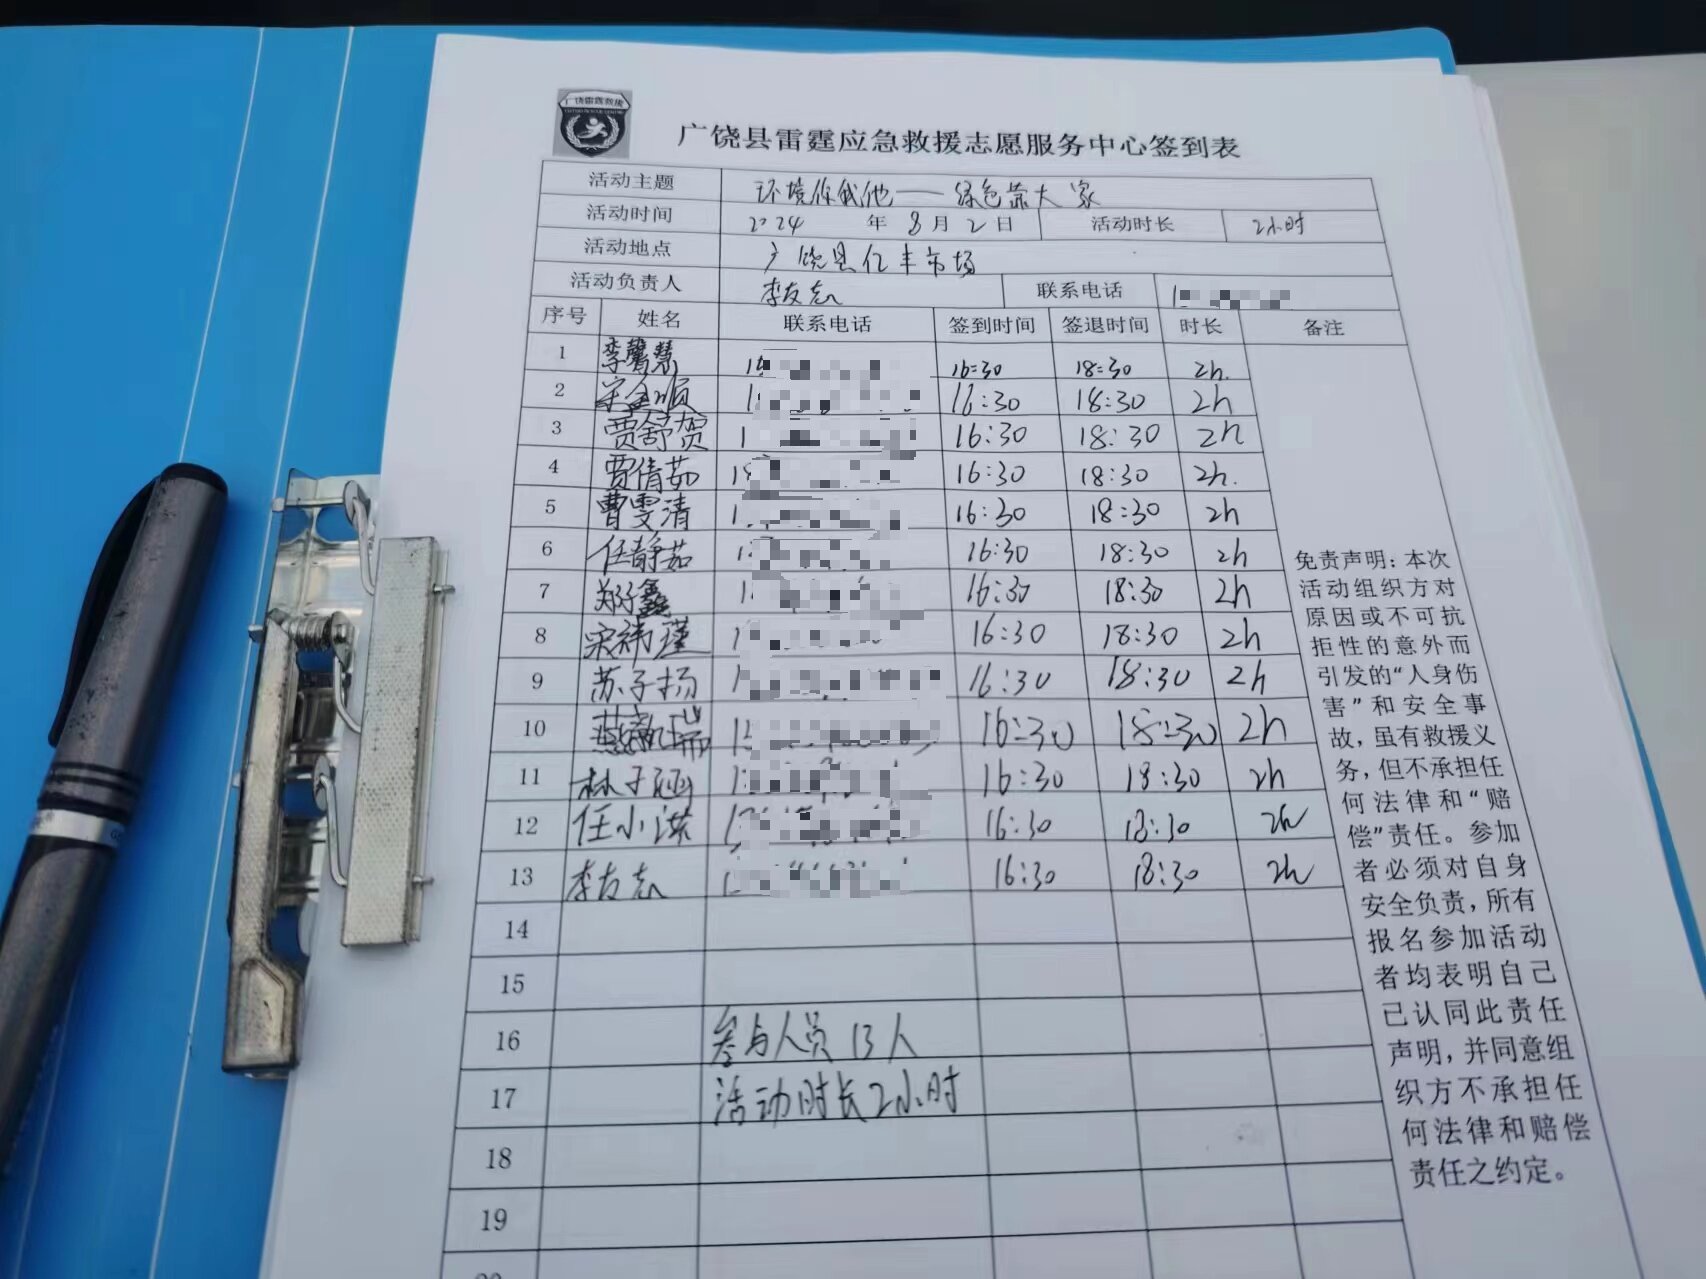 广饶雷霆救援
广饶县雷霆应急救援志愿服务中心签到表
活动主题 环境你我他——绿色靠大家
活动时间 2024 年 8 月 2 日 活动时长 2小时
活动地点 广饶县亿丰市场
活动负责人 李友志 联系电话 1
序号 姓名 联系电话 签到时间 签退时间 时长 备注
1 李馨慧 16:30 18:30 2h.
2 宋金顺 1 16:30 18:30 2h
3 贾舒贺 1 16:30 18:30 2h
4 贾倩茹 16:30 18:30 2h.
5 曹雯清 1 16:30 18:30 2h
6 任静茹 1 16:30 18:30 2h
7 郑子鑫 1 16:30 18:30 2h
8 宋祎瑾 1 16:30 18:30 2h
9 苏子扬 1 16:30 18:30 2h
10 16:30 18:30 2h
11 林子涵 1 16:30 18:30 2h
12 任小洪 16:30 18:30 2h
13 李友志 1 16:30 18:30 2h
14
15
16 参与人员 13人
17 活动时长2小时
18
19
免责声明：本次
活动组织方对
原因或不可抗
拒性的意外而
引发的“人身伤
害”和安全事
故，虽有救援义
务，但不承担任
何法律和“赔
偿”责任。参加
者必须对自身
安全负责，所有
报名参加活动
者均表明自己
已认同此责任
声明，并同意组
织方不承担任
何法律和赔偿
责任之约定。